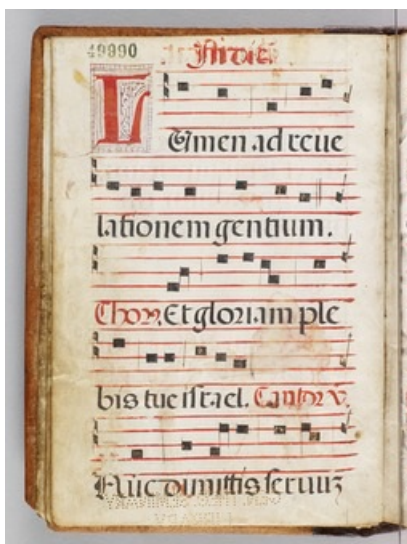 49990
L
Umen ad reue
lationem gentium.
Chor. Et gloriam ple
bis tue israel. Cantor V.
Nunc dimittis seruuz